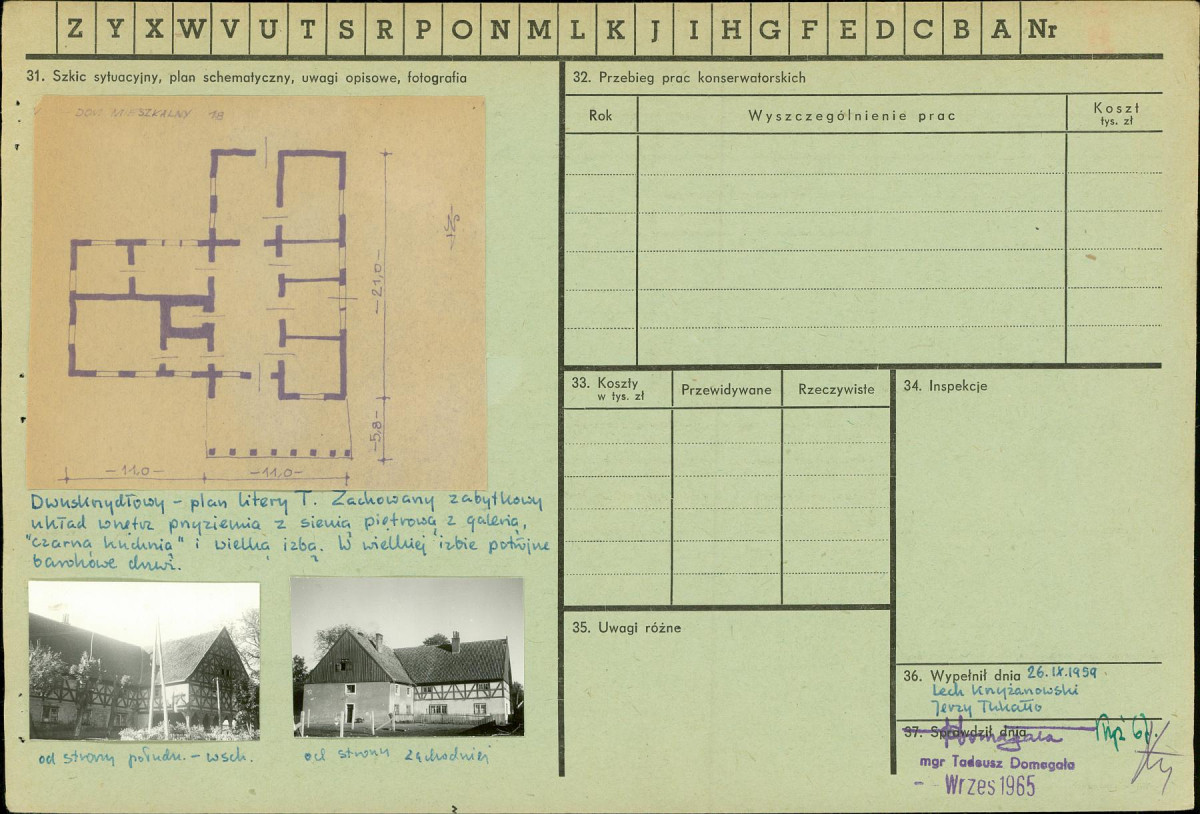 Z Y X W V U T S R P O N M L K J I H G F E D C B A Nr
31. Szkic sytuacyjny, plan schematyczny, uwagi opisowe, fotografia
DOM MIESZKALNY 18
-21,0-
-5,8-
-11,0- -11,0-
Dwuskrzydłowy - plan litery T. Zachowany zabytkowy
układ wnętrz przyziemia z sienią piętrową z galerią,
"czarną kuchnią" i wielką izbą. W wielkiej izbie potrójne
barokowe drzwi.
od strony połudn. - wsch.
od strony zachodniej
32. Przebieg prac konserwatorskich
Rok
Wyszczególnienie prac
Koszt
tys. zł
33. Koszty
w tys. zł
Przewidywane
Rzeczywiste
34. Inspekcje
35. Uwagi różne
36. Wypełnił dnia 26.IX.1959
Lech Krzyżanowski
Jerzy
37. Sprawdził dnia
mgr Tadeusz Domagała
- Wrzes 1965